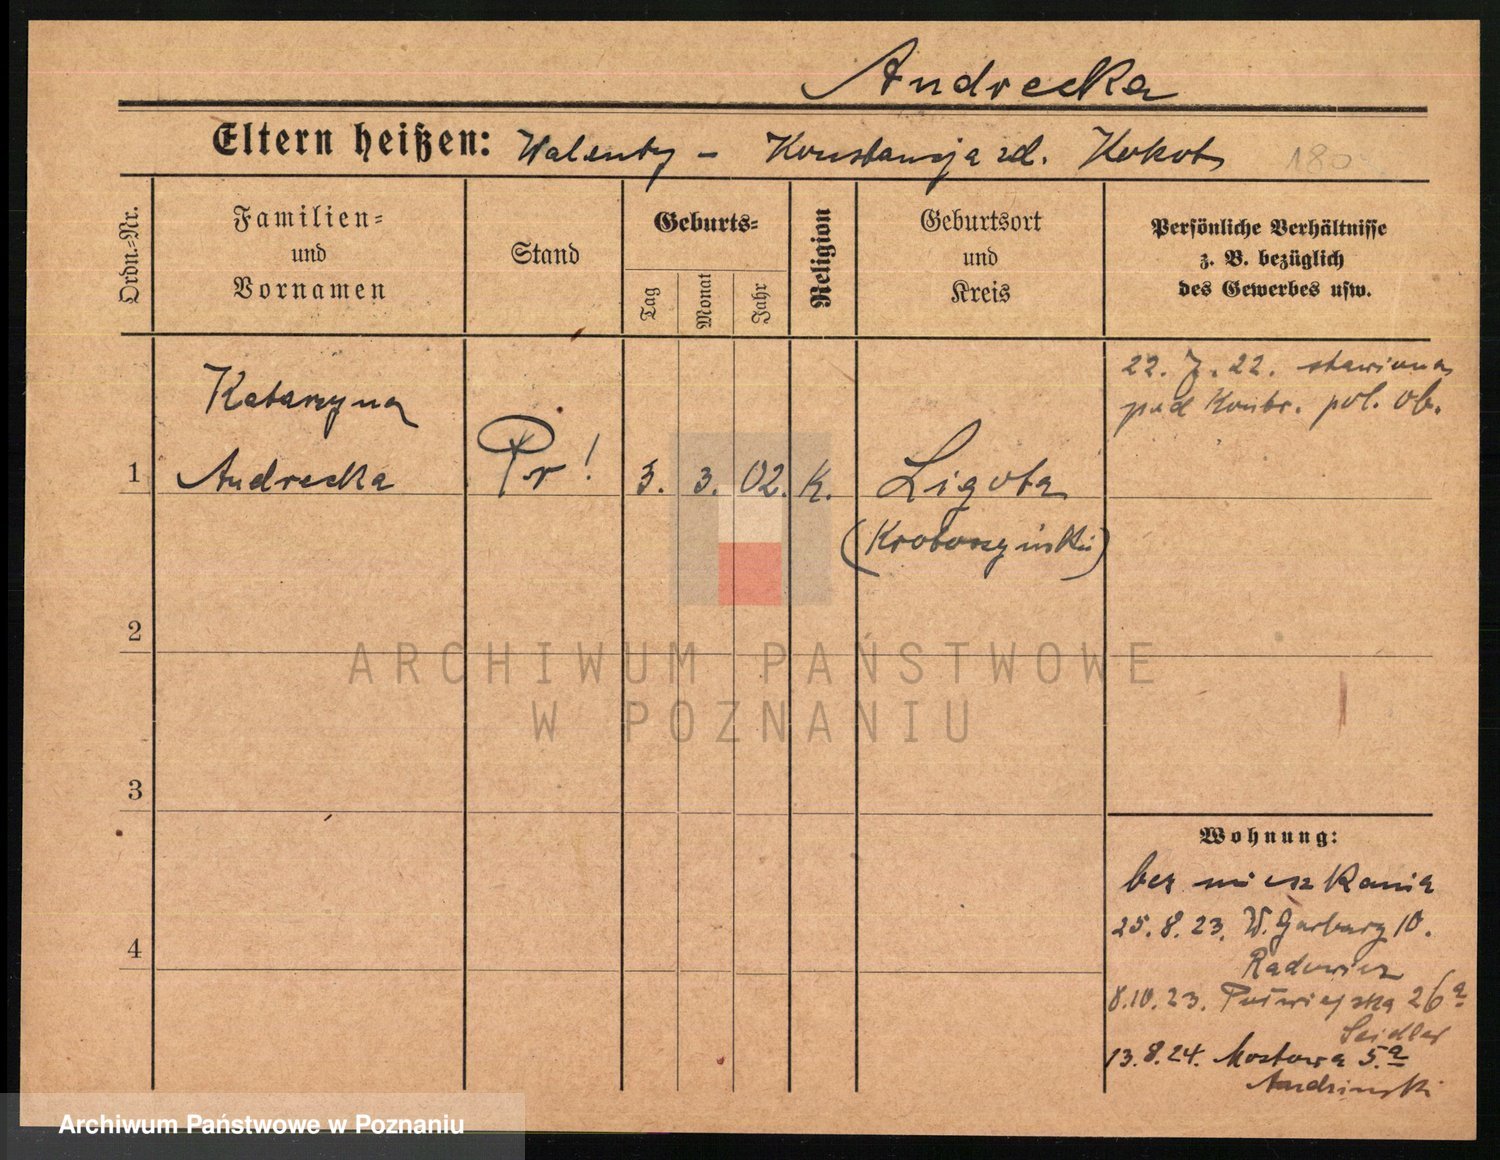 Andrecka
Eltern heißen: Walenty – Konstancja zd. Kokot
Ordn.=Nr.
Familien=
und
Vornamen
Stand
Geburts=
Tag
Monat
Jahr
Religion
Geburtsort
und
Kreis
Persönliche Verhältnisse
z. B. bezüglich
des Gewerbes usw.
Katarzyna
1 Andrecka Pr! 3. 02. K. Ligota
(Krotoszyński)
22. 7. 22. stawiona
pod Kontr. pol. ob.
2
3
4
Wohnung:
bez mieszkania
25. 8. 23. W. Garbary 10.
8.10.23. Półwiejska 26a
Seidler
13.8.24. Mostowa 5.a
ARCHIWUM PAŃSTWOWE
W POZNANIU
Archiwum Państwowe w Poznaniu